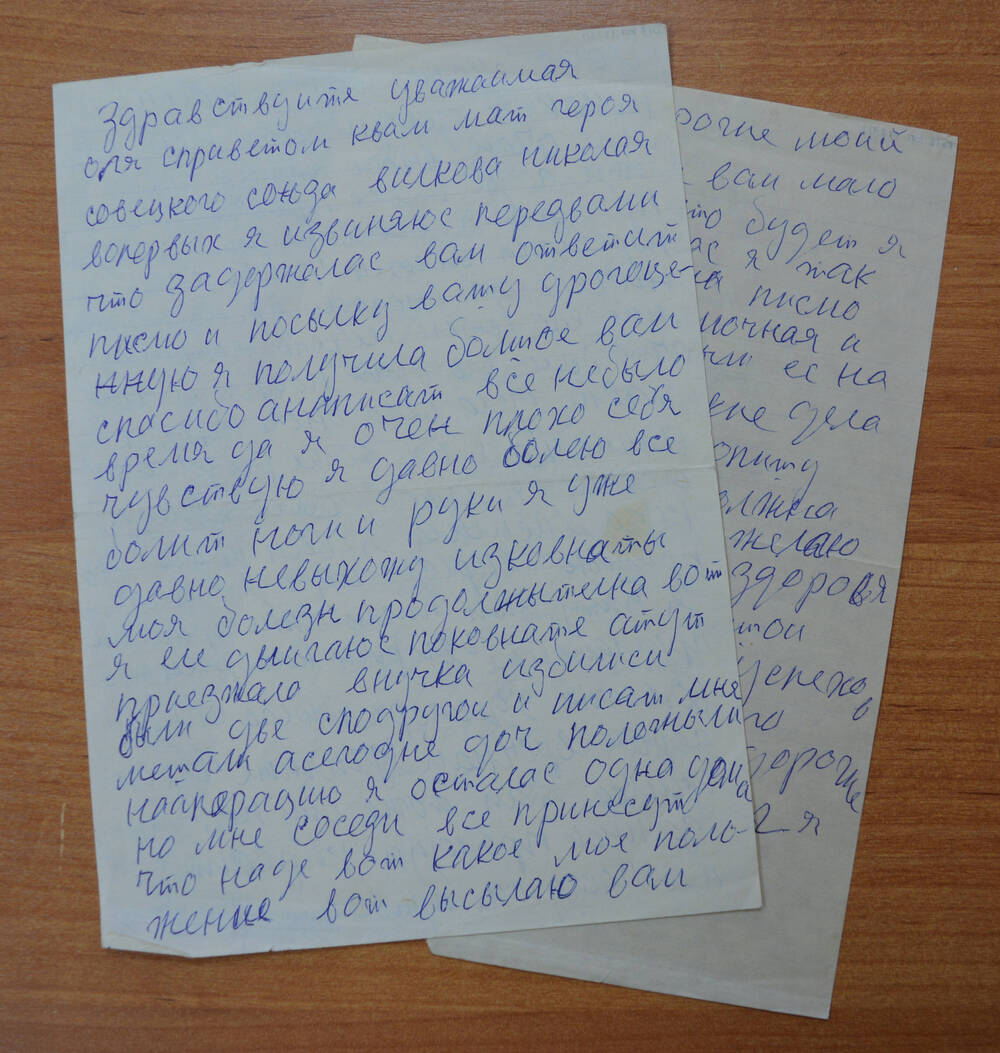 Здравствуите уважаимая
оля списветом квам мат героя
совецкого союза вилкова николая
вопервых я извиняюс передвами
что задержалас вам ответит
писмо и посылку вашу дрогоце-
нную я получила болшое вам
спасибо анаписат все небыло
время да я очен плохо себя
чувствую я давно болею все
болит ноги и руки я уже
давно невыхожу изковнаты
моя болезн продолжытелна вот
я еле двигаюс поковнате атут
приезжала внучка избилиси
были две сподругои и писат мне
мешали асегодне доч положыли
наапирацию я осталас одна дома
но мне соседи все принесут
что наде вот какое мое поло-
жение вот высылаю вам
рогие моий
вам мало
будет я
ас я так
писмо
мочная и
ее на
дела
жолаю
здоровя
успехов
дороги
я